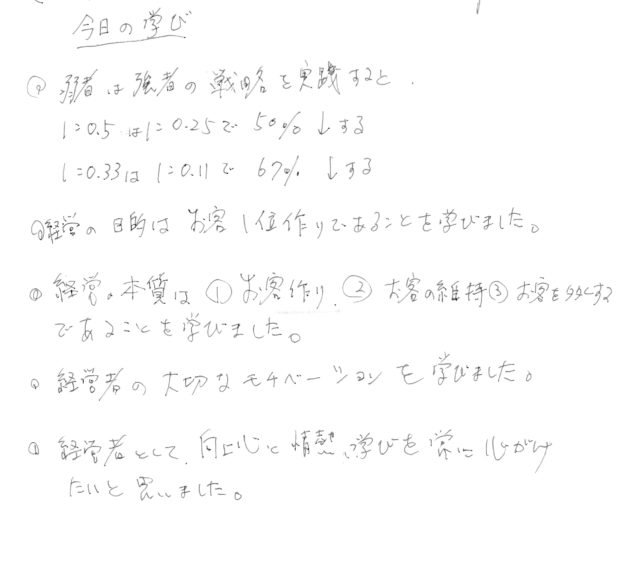 今日の学び
① 弱者は強者の戦略を実践すると.
1:0.5は1:0.25で 50% ↓する
1:0.33は 1:0.11で 67% ↓する
①経営の目的は お客1位作りであることを学びました。
① 経営の本質は ① お客作り. ② お客の維持 ③ お客を多くする
であることを学びました。
① 経営者の大切なモチベーションを学びました。
① 経営者として、向上心と情熱、学びを常に心がけ
たいと思いました。